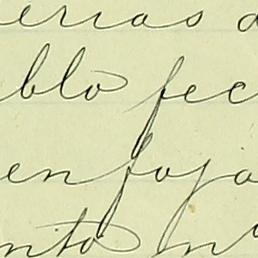 erias d
blo fec
en foja
nto n